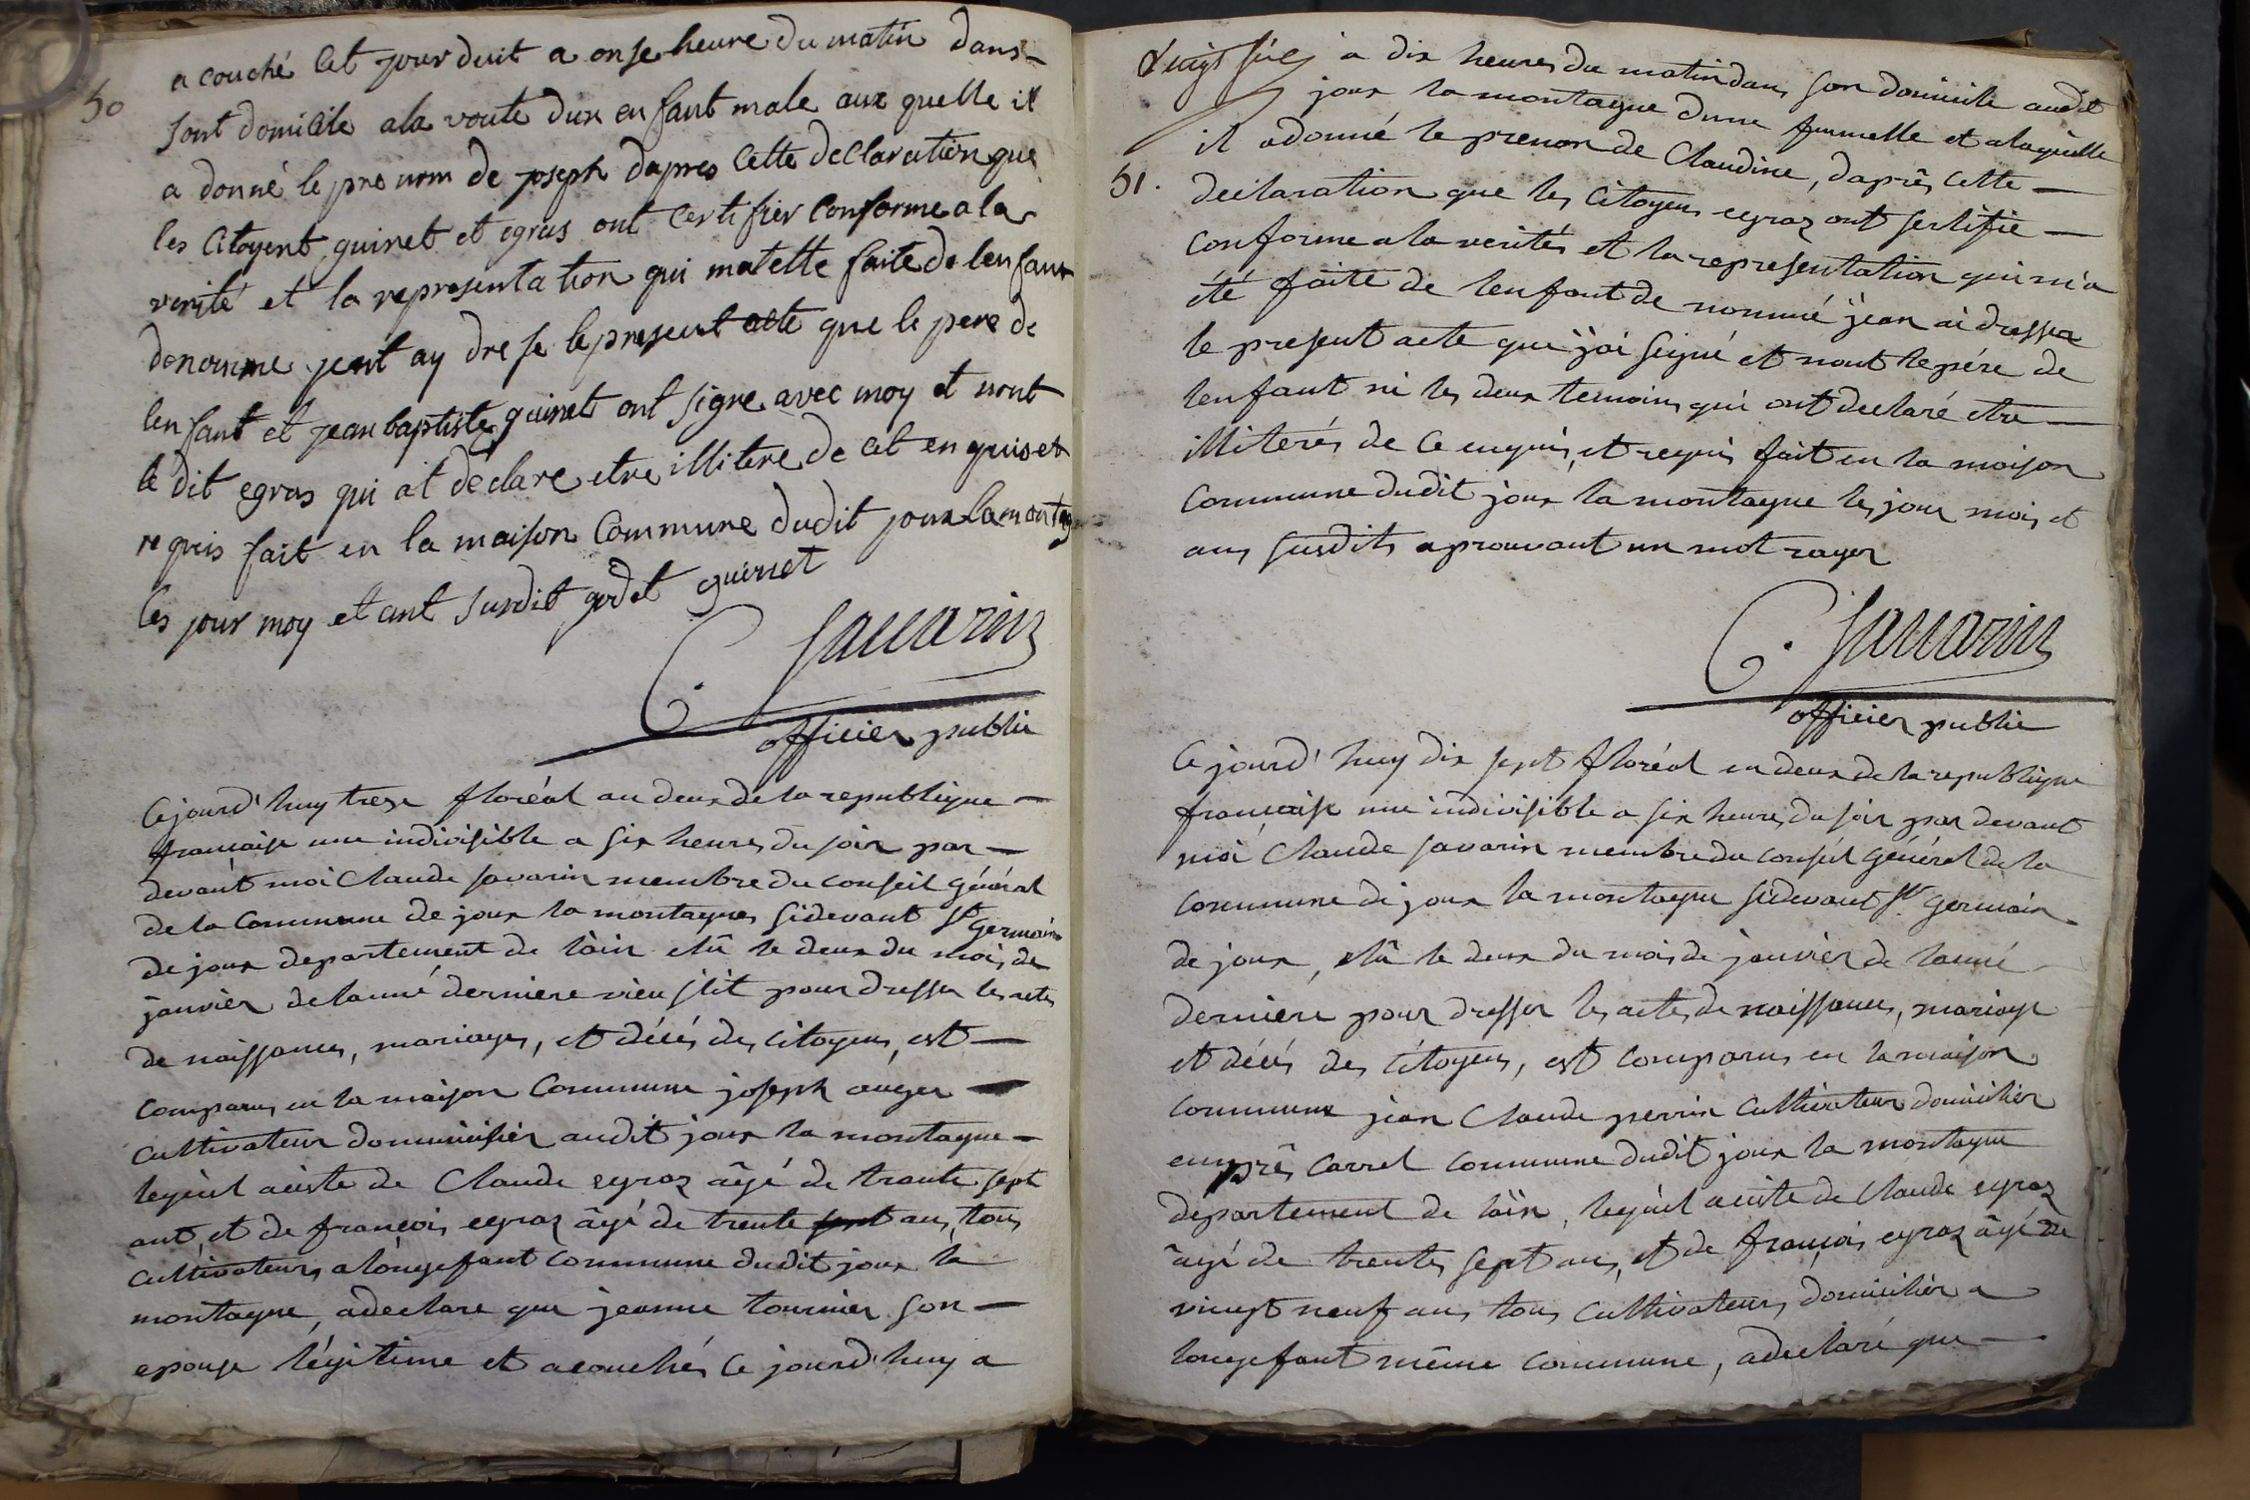 50
a couché Cet jour duit a onse heure du matin dans
sont domicile a la voute dun en fant male aux quelle il
a donné le pre nom de joseph dapres Cette declaration que
les Citoyent guinet et egras ont Certifier Conforme a la
verité et la representation qui mat ette faite de len fant
denomme jent ay dresse le present acte que le pere de
len fant et jean baptiste guinet ont signe avec moy et nont
le dit egras qui at déclare etre illitere de Cet en quis et
requis fait en la maison Commune dudit joux la montag
les jour moy et ant susdit godet guinet
C. Savarin
officier public
Cejourd'huy treze floréal an deux de la republique
française une indivisible a six heures du soir par
devant moi Claude savarin membre du Conseil général
de la Commune de joux la montagne sidevant st germain
de joux departement de làin elû le deux du mois de
janvier delanné derniere vieu stit pour dresser les actes
de naissances, mariages, et décés des Citoyens, est
Comparus en la maison Commune joseph anger
cultivateur domicisier audit joux la montagne
lequel aciste de Claude egraz âgé de trante sept
ant, et de françois egraz âgé de trente sept ans, tous
Cultivateurs a longefant Commune dudit joux la
montagne, adeclare que jeanne tournier son
epouse légitime et acouchés Ce jourd'huy a
à dix heures du matin dans son domicile audit
joux la montagne dune fummelle et a laquelle
il adonné le prenon de Claudine, daprês Cette
51.
declaration que les Citoyens egraz ont sertifie
Conforme a la verités et la representation qui m'a
été faite de lenfant de nommé jean ai dresser
le present acte que j'ai signé et nont le pére de
lenfant ni les deux temoins qui ont declaré etre
illiterés de Ce enquis, et requis fait en la maison
Commune dudit joux la montagne les jour mois et
ans susdits aprouvant un mot rayer
C. Savarin
officier public
Ce jourd'huy dix sept floréal en deux de la republique
française une indivisible a six heures du soir par devant
moi Claude savarin membre du Conseil général de la
Commune de joux la montagne sidevant st germain
de joux, elû le deux du mois de janvier de lanné
derniere pour dresser les actes de naissances, mariage
et décés des Citoyens, est Comparus en la maison
Commune jean Claude perrin Cultivateur domicilier
enprês Carrel Commune dudit joux la montagne
departement de laïn, lequel aciste de Claude egraz
âgé de trente sept ans, et de françois egraz âgé de
vingt neuf ans tous Cultivateurs domicilier a
longefant même Commune, adeclaré que